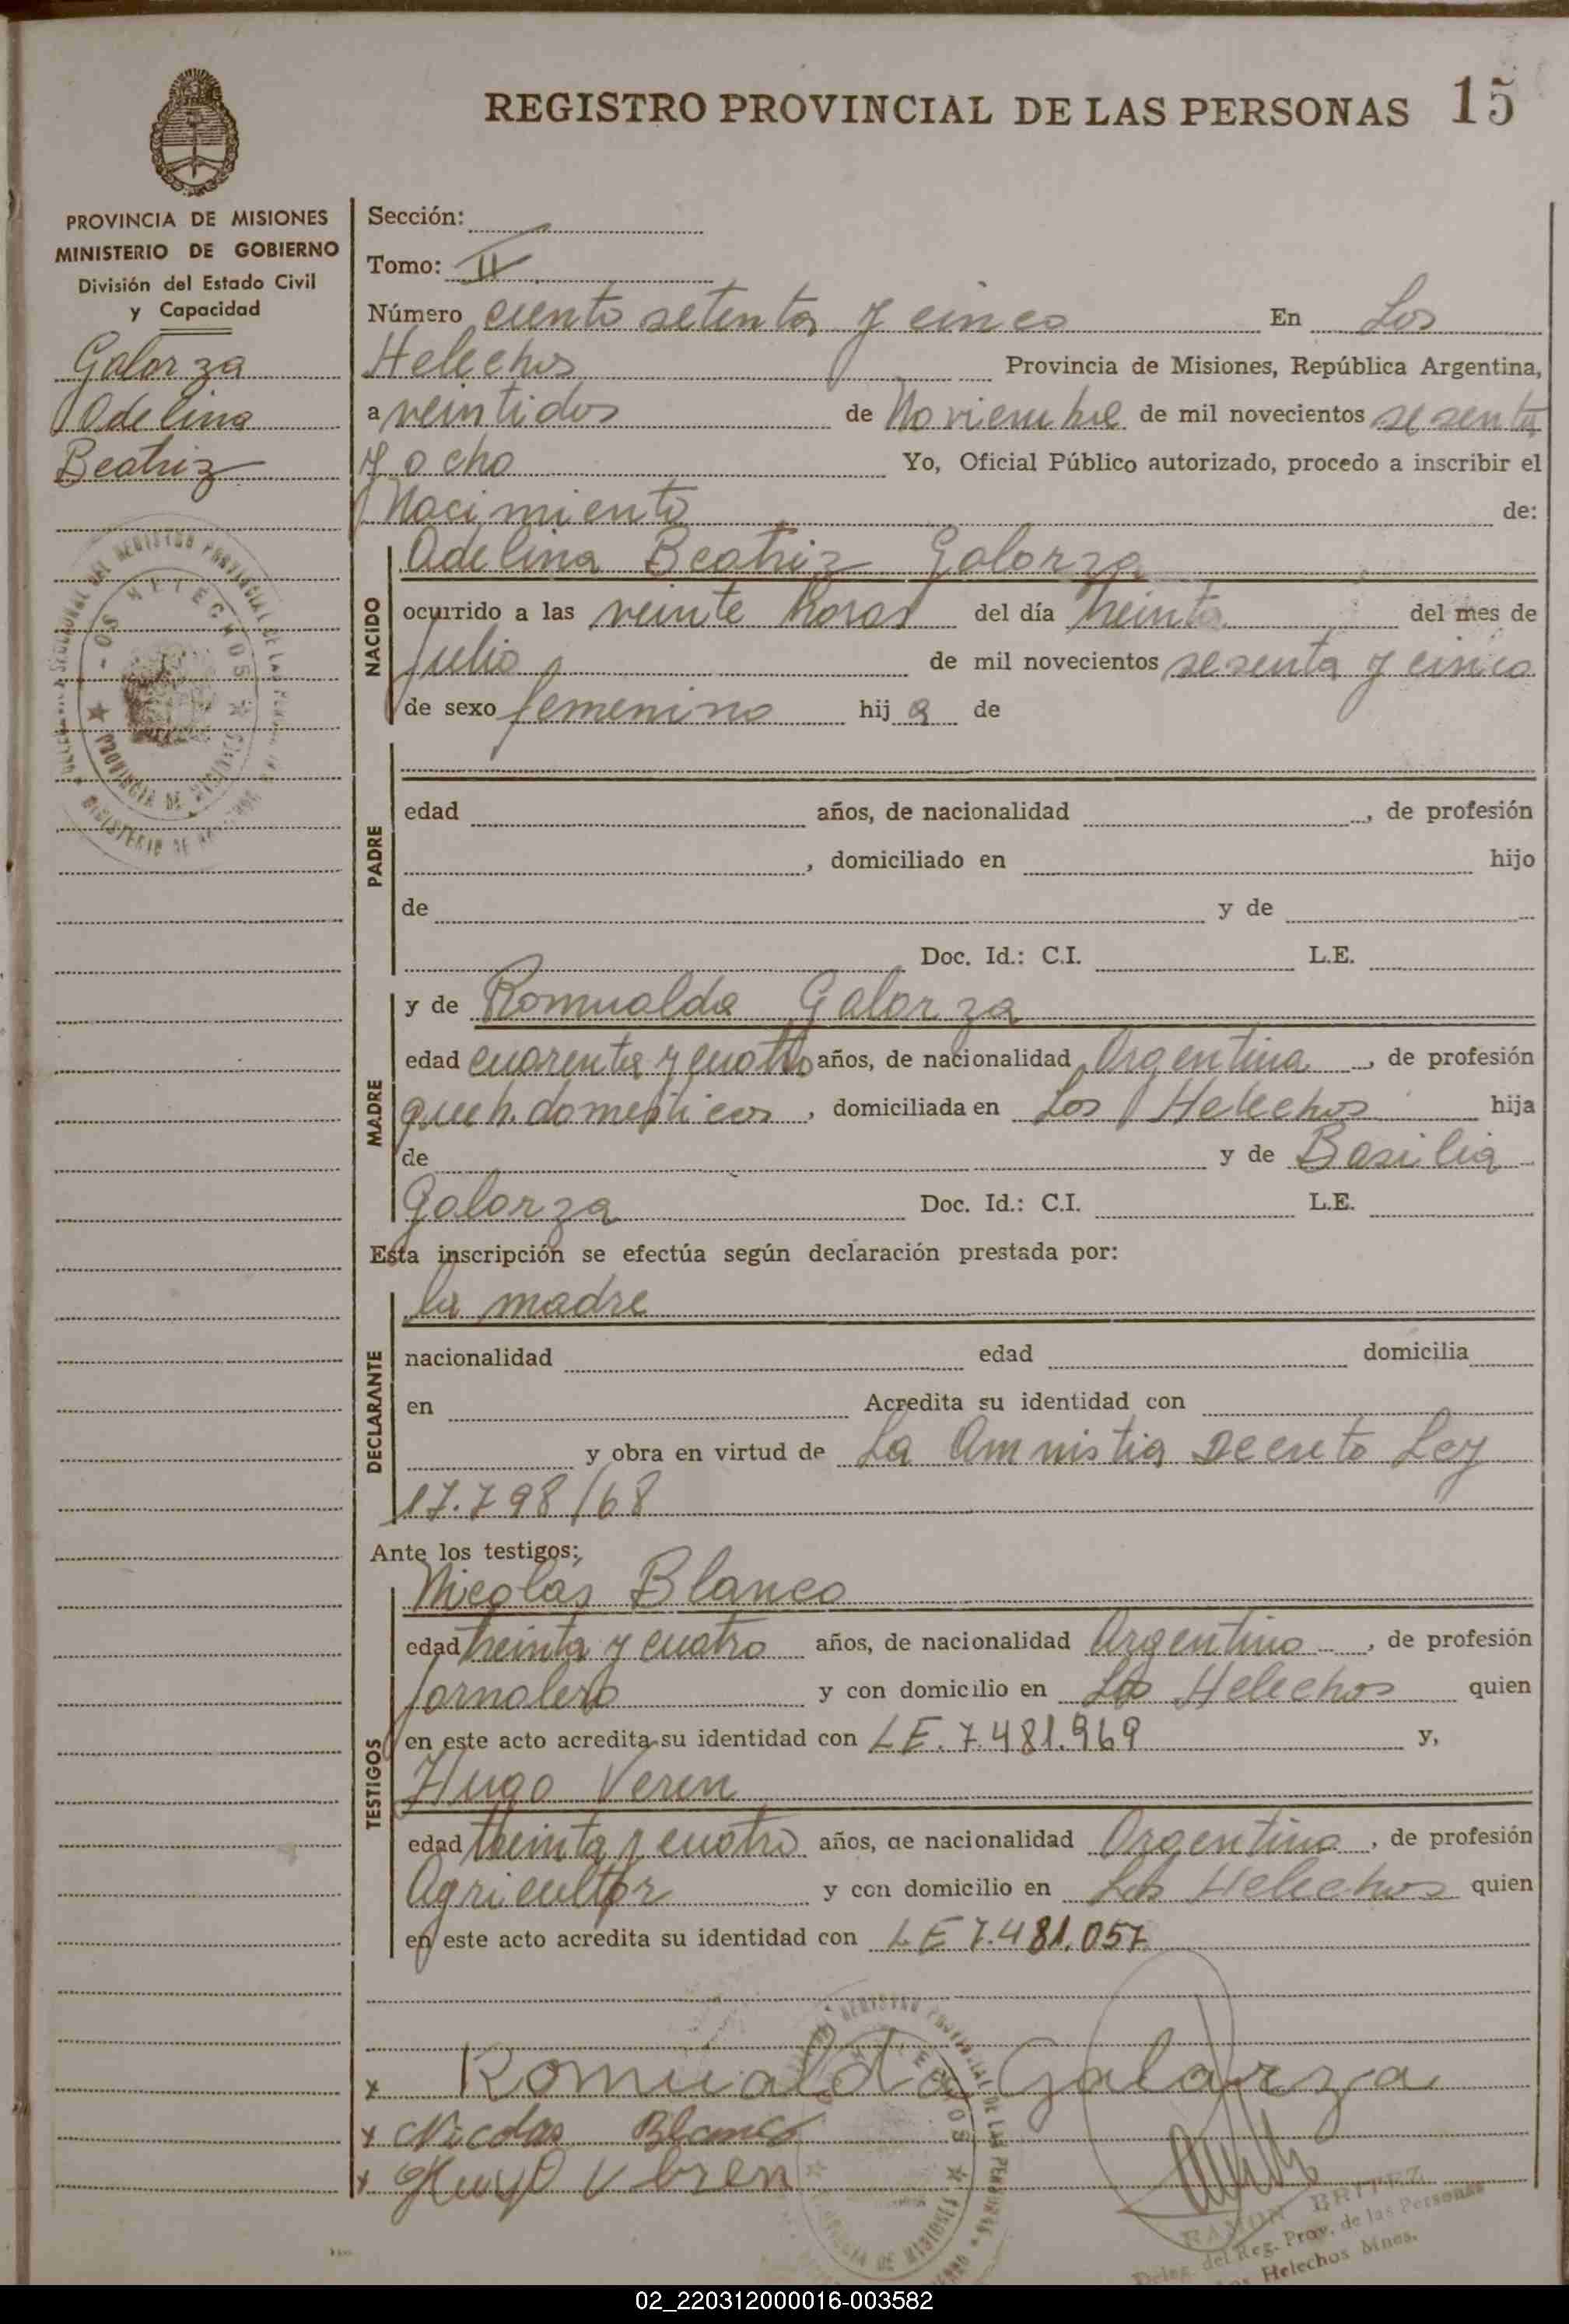 REGISTRO PROVINCIAL DE LAS PERSONAS 15
PROVINCIA DE MISIONES
MINISTERIO DE GOBIERNO
División del Estado Civil
y Capacidad
Galorza
Adelina
Beatriz
Sección:
Tomo: II
Número ciento setenta y cinco En Los
Helechos Provincia de Misiones, República Argentina,
a veintidos de Noviembre de mil novecientos sesenta
y ocho Yo, Oficial Público autorizado, procedo a inscribir el
Nacimiento de:
NACIDO
Adelina Beatriz Galorza
ocurrido a las veinte horas del día treinta del mes de
Julio de mil novecientos sesenta y cinco
de sexo femenino hij a de
PADRE
edad años, de nacionalidad , de profesión
, domiciliado en hijo
de y de
Doc. Id.: C.I. L.E.
MADRE
y de Romualda Galorza
edad cuarenta y cuatro años, de nacionalidad Argentina , de profesión
queh. domesticos , domiciliada en Los Helechos hija
de y de Basilia
Galorza Doc. Id.: C.I. L.E.
Esta inscripción se efectúa según declaración prestada por:
DECLARANTE
la madre
nacionalidad edad domicilia
en Acredita su identidad con
y obra en virtud de La Amnistia Decreto Ley
17.798/68
Ante los testigos:
TESTIGOS
Nicolás Blanco
edad treinta y cuatro años, de nacionalidad Argentino , de profesión
Jornalero y con domicilio en Los Helechos quien
en este acto acredita su identidad con LE. 7.481.969 y,
Hugo Veren
edad treinta y cuatro años, de nacionalidad Argentino , de profesión
Agricultor y con domicilio en Los Helechos quien
en este acto acredita su identidad con LE 7.481.057
x Romualda Galarza
x Nicolas Blanco
x Hugo Veren
RAMON BRITEZ
Deleg. del Reg. Prov. de las Personas
Los Helechos Mnes.
02_220312000016-003582